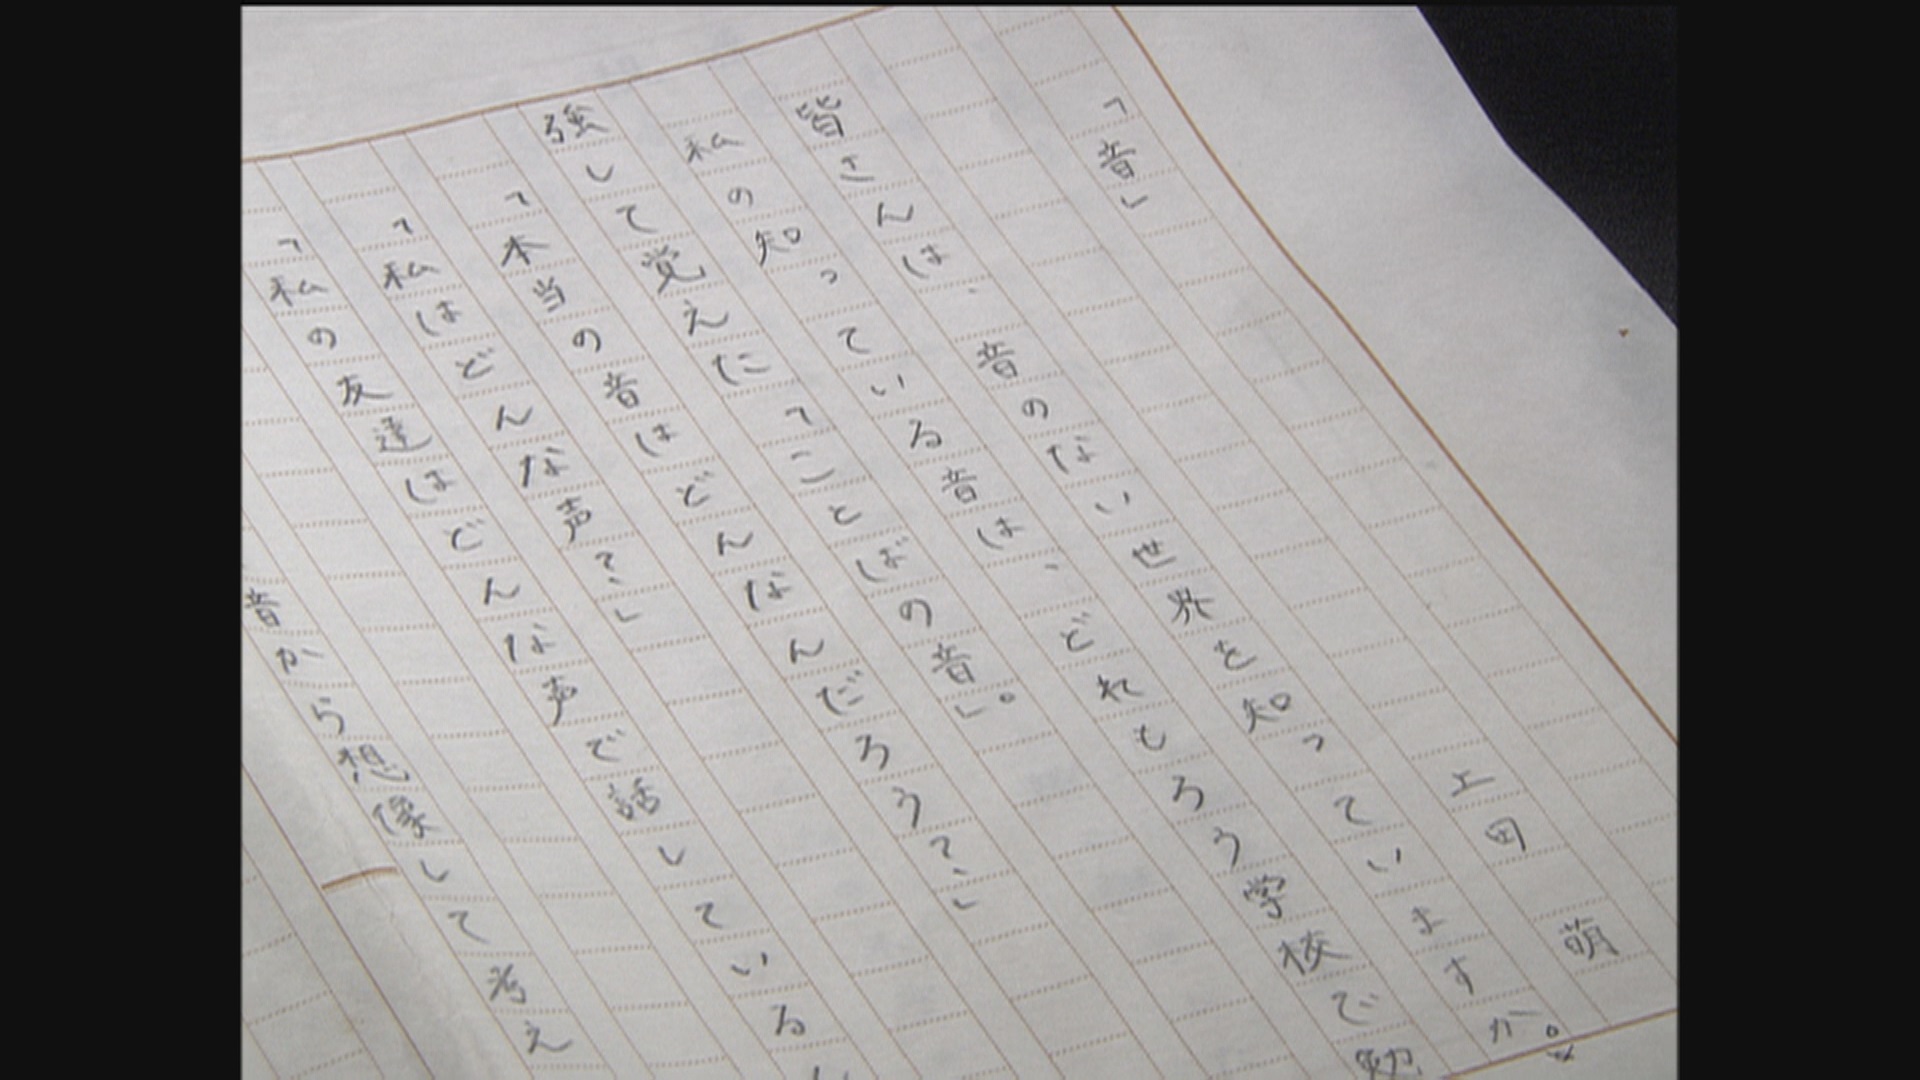 「音」
上田　萌
皆さんは、音のない世界を知っていますか。
私の知っている音は、どれもろう学校で勉
強して覚えた「ことばの音」。
「本当の音はどんなんだろう？」
「私はどんな声？」
「私の友達はどんな声で話している
音から想像して考え